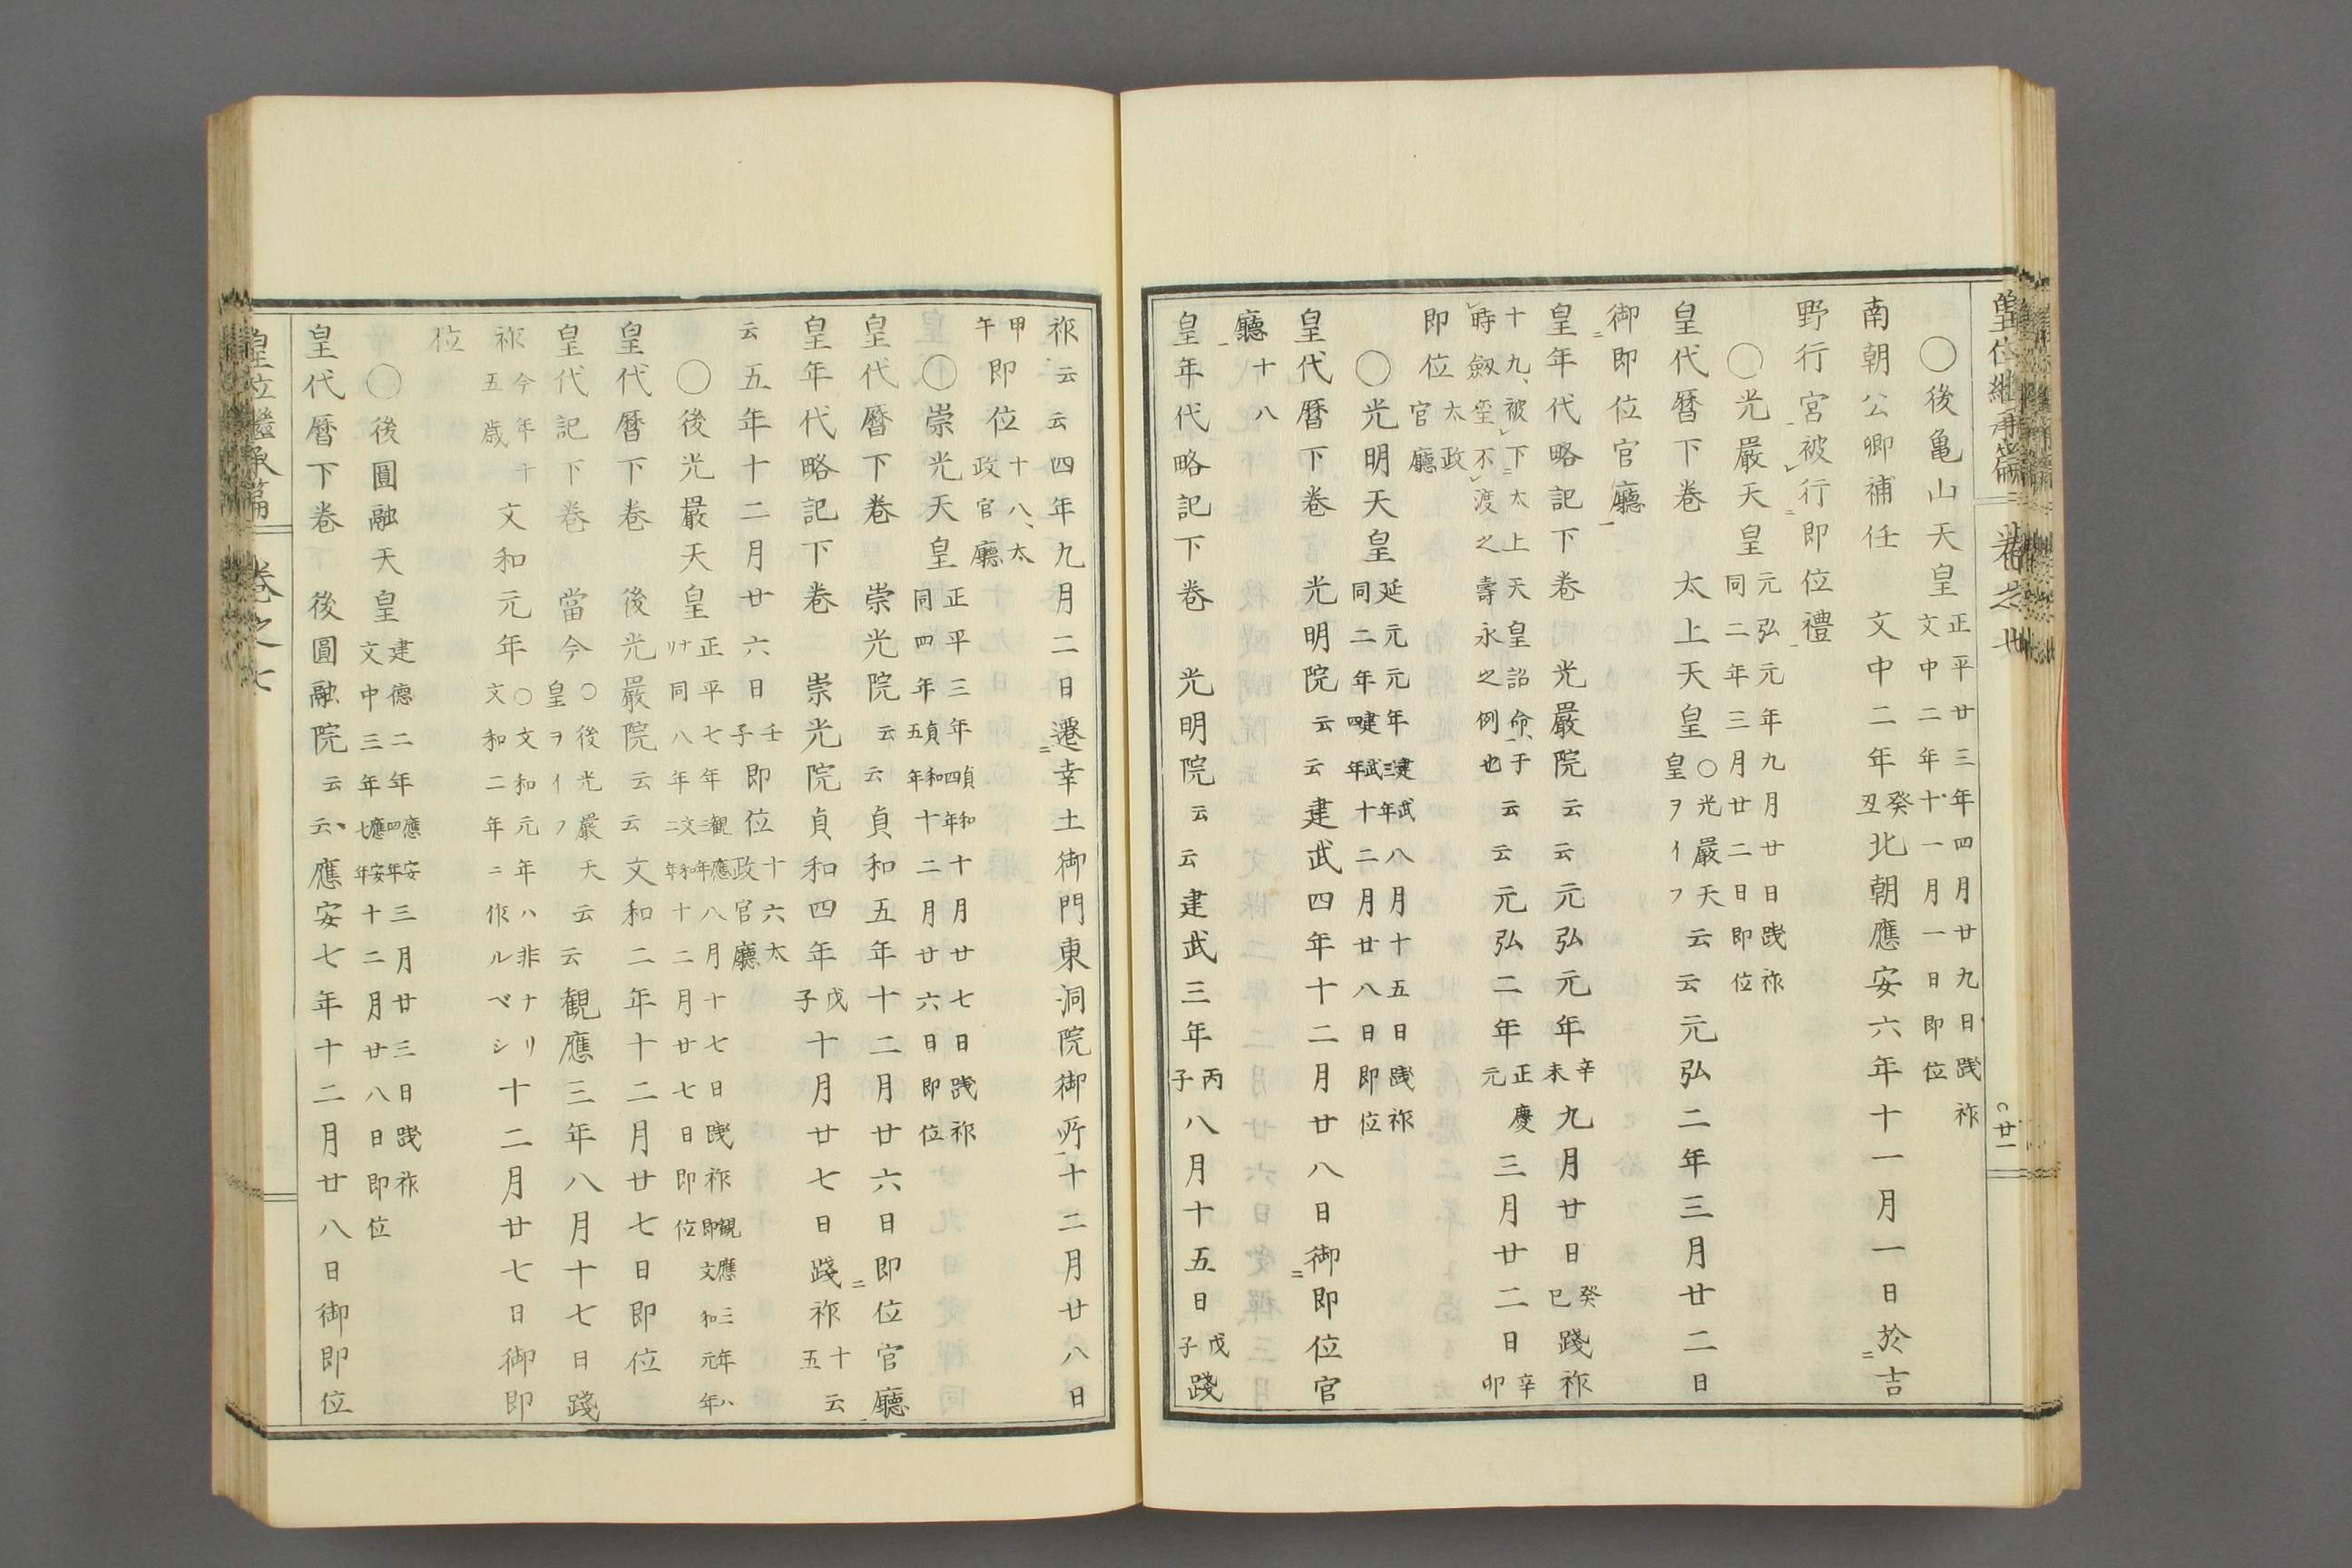 〇後亀山天皇 正平廿三年四月廿九日践祚 文中二年十一月一日即位
南朝公卿補任 文中二年癸丑北朝應安六年十一月一日於吉
野行宮被行即位禮
〇光嚴天皇 元弘元年九月廿日践祚 同二年三月廿二日即位
皇代暦下巻 太上天皇〇光嚴天皇ヲイフ云云元弘二年三月廿二日
御即位官廳
皇年代略記下巻 光嚴院云云元弘元年辛未九月廿日癸巳踐祚
十九、被下太上天皇詔命、于時劔璽不渡之壽永之例也云云元弘二年正慶元三月廿二日辛卯
即位太政官廳
〇光明天皇 延元元年建武三年八月十五日践祚 同二年建武四年十二月廿八日即位
皇代暦下巻 光明院云云建武四年十二月廿八日御即位官
廳十八
皇年代略記下巻 光明院云云建武三年丙子八月十五日戊子踐
祚云云四年九月二日遷幸土御門東洞院御所十二月廿八日
甲午即位十八、太政官廳
〇崇光天皇 正平三年貞和四年十月廿七日践祚 同四年貞和五年十二月廿六日即位
皇代暦下巻 崇光院云云貞和五年十二月廿六日即位官廳
皇年代略記下巻 崇光院貞和四年戊子十月廿七日踐祚十五云
云五年十二月廿六日壬子即位十六太政官廳
〇後光嚴天皇 正平七年觀應三年八月十七日践祚觀應三年ハ即文和元年ナリ 同八年文和二年十二月廿七日即位
皇代暦下巻 後光嚴院云云文和二年十二月廿七日即位
皇代記下巻 當今〇後光嚴天皇ヲイフ云云觀應三年八月十七日踐
祚今年十五歳文和元年〇文和元年ハ非ナリ文和二年ニ作ルベシ十二月廿七日御即
位
〇後圓融天皇 建德二年應安四年三月廿三日践祚 文中三年應安七年十二月廿八日即位
皇代暦下巻 後圓融院云云應安七年十二月廿八日御即位
皇位繼承篇 巻之七